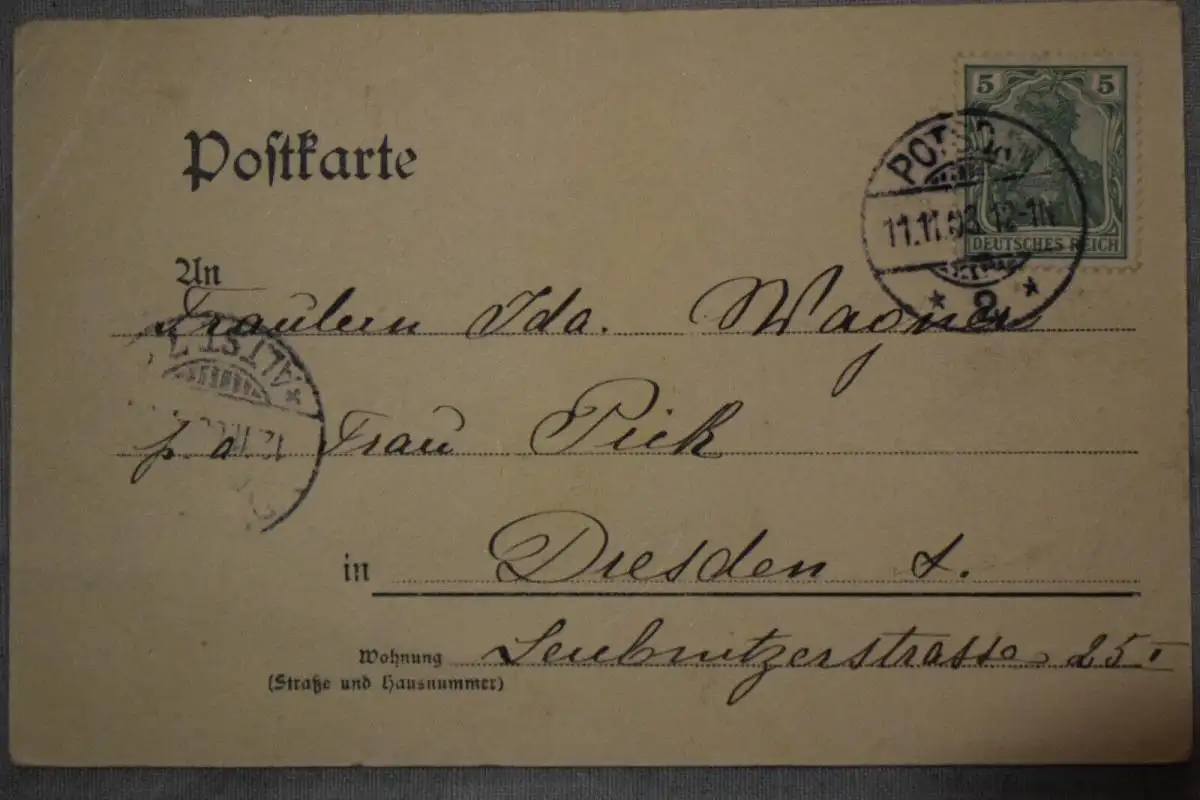 5 5
DEUTSCHES REICH
POTSDAM
11.11.03. 12-1N
* 2 *
Postkarte
An
Fräulein Ida. Wagner
*ALTST.
p. a. Frau Pick
in Dresden A.
Wohnung Leubnitzerstrasse 25 I
(Straße und Hausnummer)